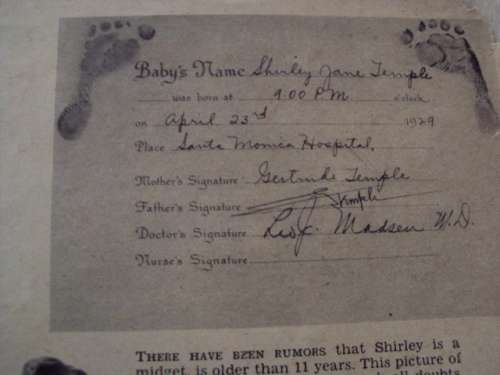 Baby's Name Shirley Jane Temple
was born at 9:00 P.M. o'clock
on April 23rd 1929
Place Santa Monica Hospital.
Mother's Signature Gertrude Temple
Father's Signature Temple
Doctor's Signature Leo J. Madsen M.D.
Nurse's Signature
THERE HAVE BEEN RUMORS that Shirley is a
midget, is older than 11 years. This picture of
all doubts